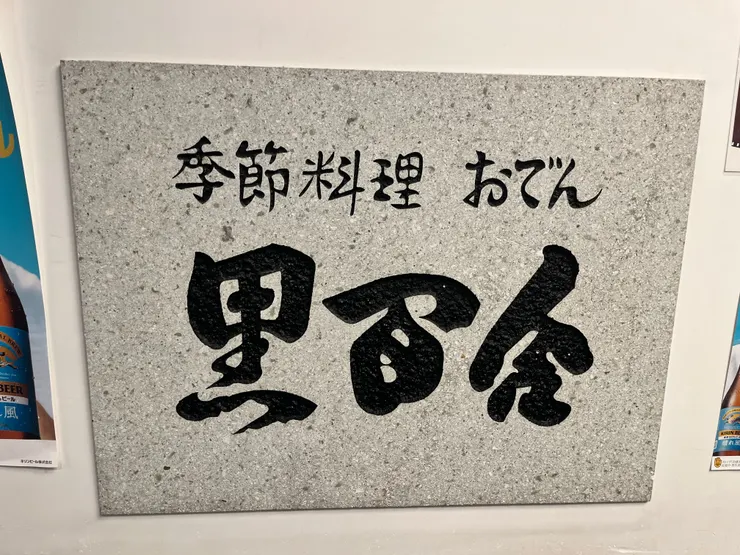 季節料理 おでん
黒百合
BEER
風
キリンビール株式会社